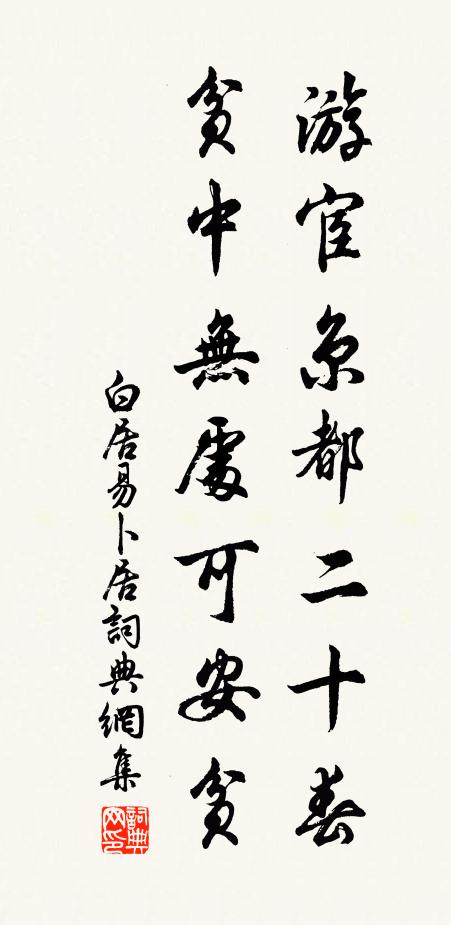 游宦京都二十春
貧中無處可安貧
白居易卜居詞典網集
詞典网印